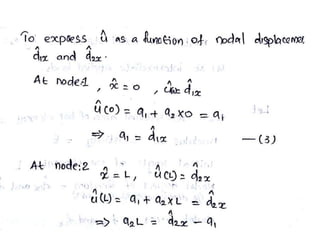 To express û as a function of nodal displacement
d̂1x and d̂2x.
At node:1 , x̂ = 0 , d̂1x
û(0) = a1 + a2×0 = a1
⇒ a1 = d̂1x —(3)
At node:2 x̂ = L, û(L) = d̂2x
û(L) = a1 + a2×L = d̂2x
=> a2L = d̂2x - a1